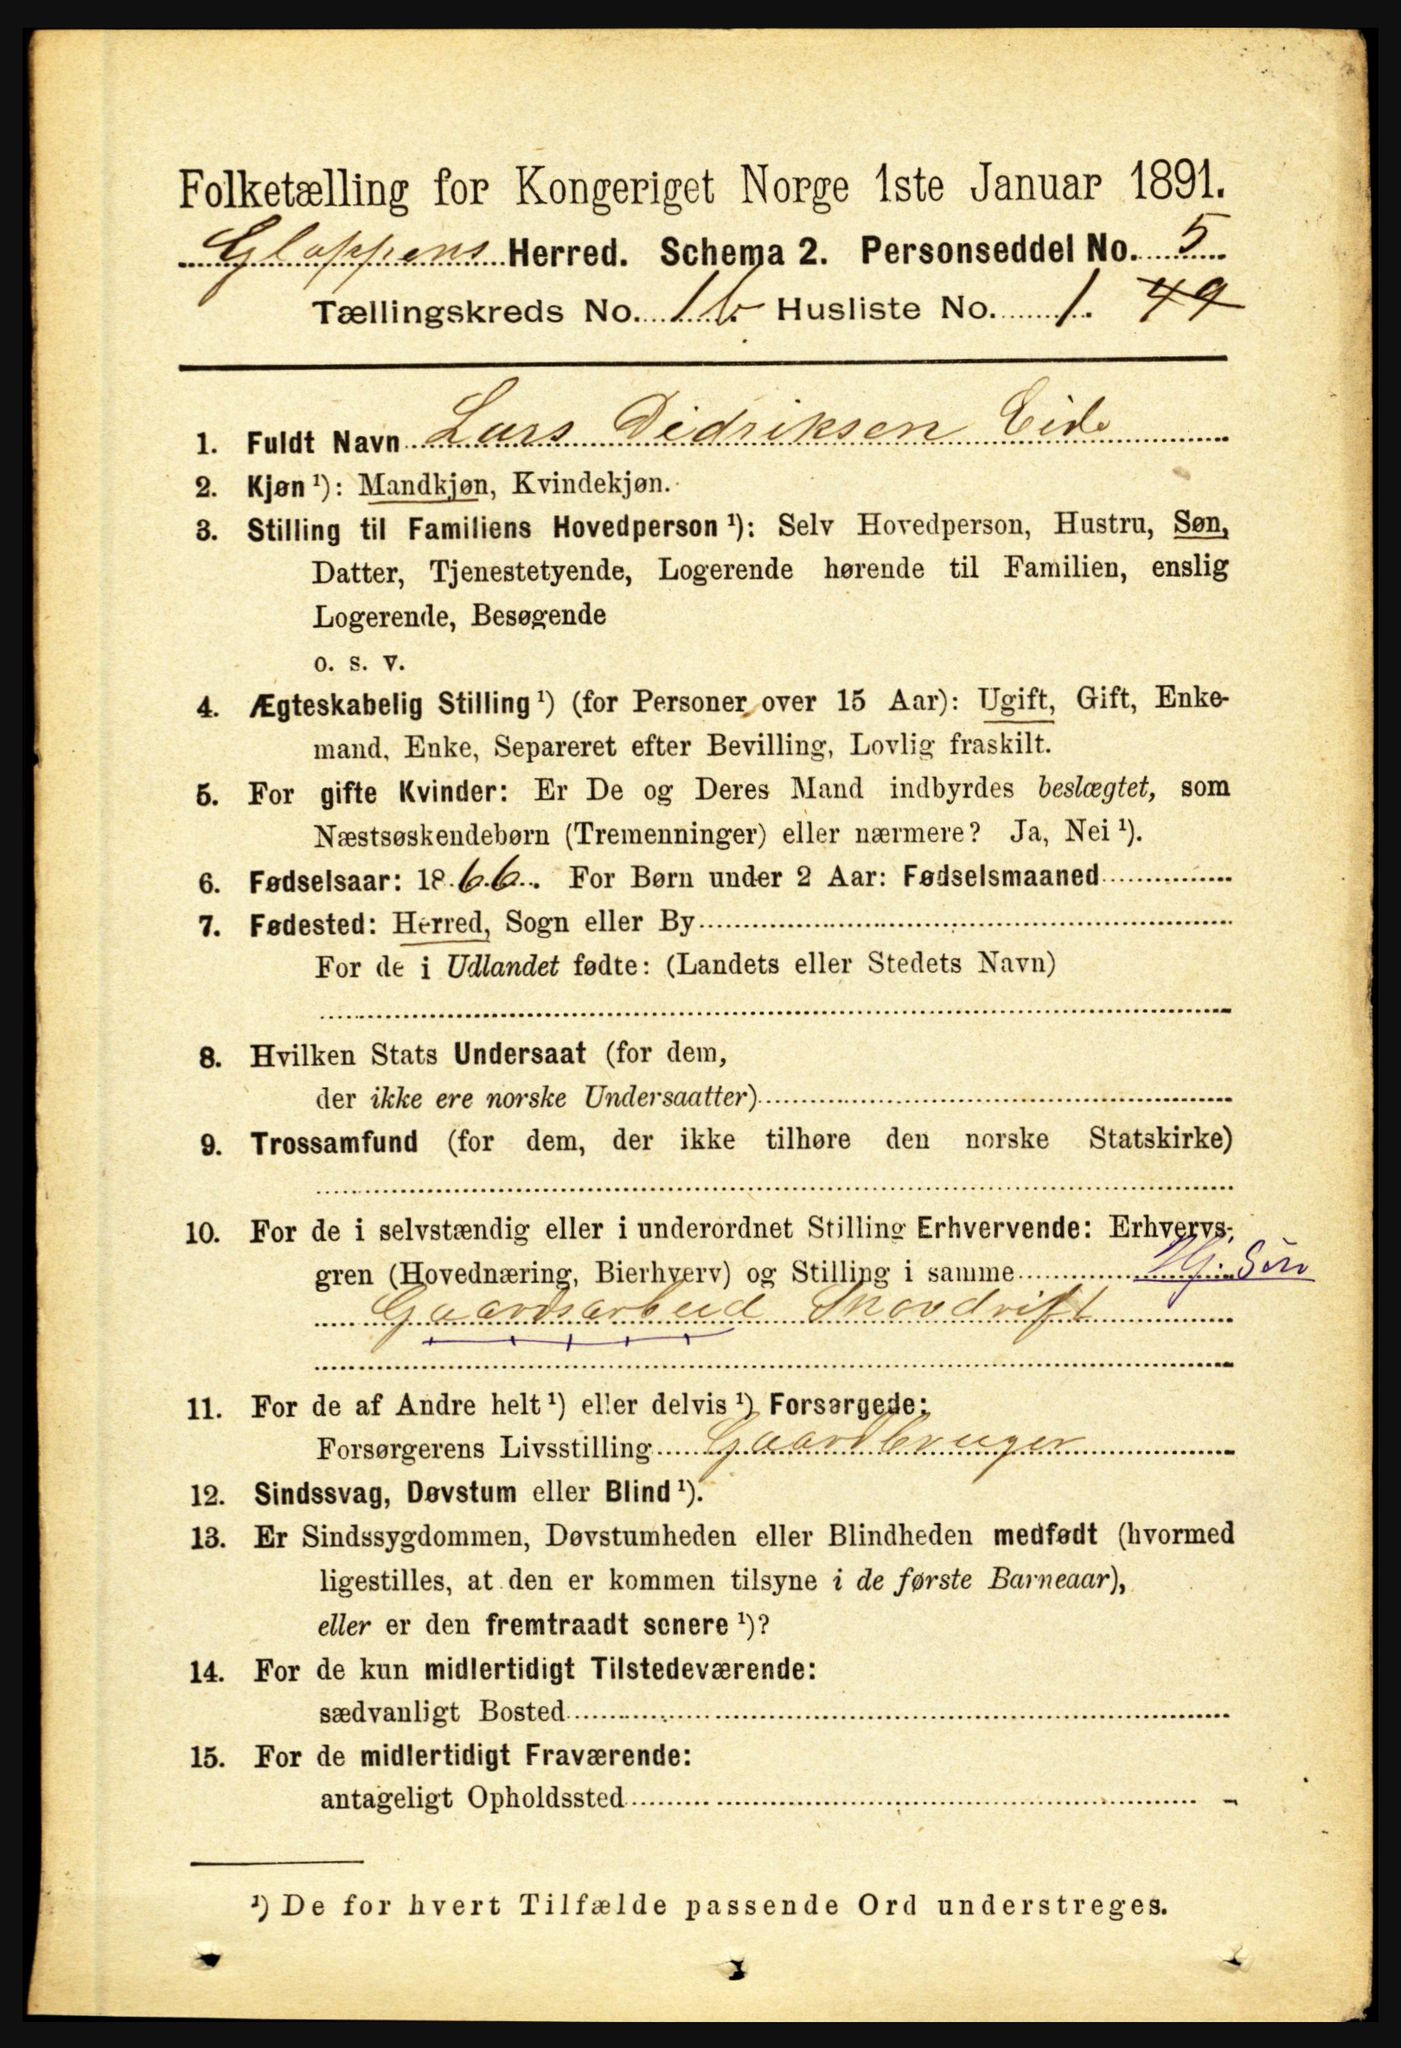 Folketælling for Kongeriget Norge 1ste Januar 1891.
Gloppens Herred. Schema 2. Personseddel No. 5
Tællingskreds No. 1b Husliste No. 1. 49
1. Fuldt Navn Lars Didriksen Eide
2. Kjøn ¹): Mandkjøn, Kvindekjøn.
3. Stilling til Familiens Hovedperson ¹): Selv Hovedperson, Hustru, Søn,
Datter, Tjenestetyende, Logerende hørende til Familien, enslig
Logerende, Besøgende
o. s. v.
4. Ægteskabelig Stilling ¹) (for Personer over 15 Aar): Ugift, Gift, Enke-
mand, Enke, Separeret efter Bevilling, Lovlig fraskilt.
5. For gifte Kvinder: Er De og Deres Mand indbyrdes beslægtet, som
Næstsøskendebørn (Tremenninger) eller nærmere? Ja, Nei ¹).
6. Fødselsaar: 1866. For Børn under 2 Aar: Fødselsmaaned
7. Fødested: Herred, Sogn eller By
For de i Udlandet fødte: (Landets eller Stedets Navn)
8. Hvilken Stats Undersaat (for dem,
der ikke ere norske Undersaatter)
9. Trossamfund (for dem, der ikke tilhøre den norske Statskirke)
10. For de i selvstændig eller i underordnet Stilling Erhvervende: Erhvervs-
gren (Hovednæring, Bierhverv) og Stilling i samme
Gaardsarbeid Skovdrift
11. For de af Andre helt ¹) eller delvis ¹) Forsørgede:
Forsørgerens Livsstilling Gaardbruger
12. Sindssvag, Døvstum eller Blind ¹).
13. Er Sindssygdommen, Døvstumheden eller Blindheden medfødt (hvormed
ligestilles, at den er kommen tilsyne i de første Barneaar),
eller er den fremtraadt senere ¹)?
14. For de kun midlertidigt Tilstedeværende:
sædvanligt Bosted
15. For de midlertidigt Fraværende:
antageligt Opholdssted
¹) De for hvert Tilfælde passende Ord understreges.